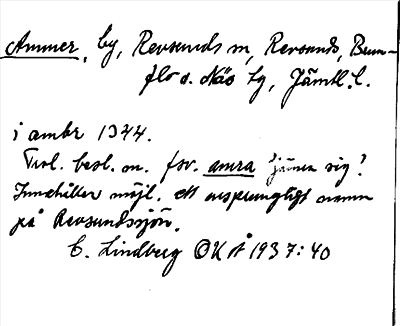 Ammer, by, Revsunds sn, Revsunds, Brun-
flo o. Näs tg, Jämtl. l.
i ambr 1344.
Trol. besl. m. fsv. amra 'jämra sig'.
Innehåller möjl. ett ursprungligt namn
på Revsundssjön.
C. Lindberg OKÅ 1937:40